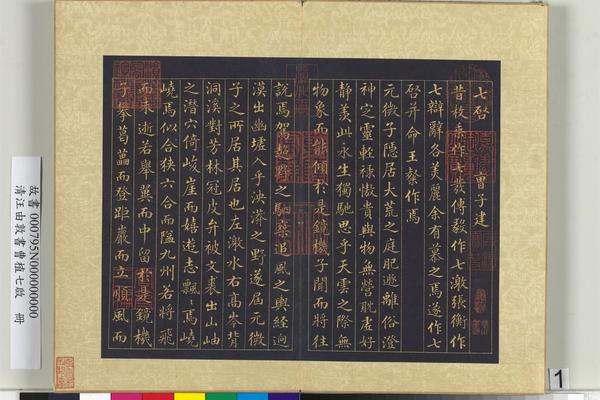 七啓 曹子建
昔枚乘作七發傅毅作七激張衡作
七辯辭各美麗余有慕之焉遂作七
啓并命王粲作焉
元微子隱居大荒之庭肥遯離俗澄
神定靈輕祿傲貴與物無營耽虛好
靜羨此永生獨馳思乎天雲之際無
物象而能傾於是鏡機子聞而將往
說焉駕超野之駟乘追風之輿經迥
漠出幽墟入乎泱漭之野遂屆元微
子之所居其居也左激水右高岑背
洞溪對芳林冠皮弁被文裘出山岫
之潛穴倚峻崖而嬉遊志飄飄焉嶢
嶢焉似合狹六合而隘九州若將飛
而未逝若舉翼而中留於是鏡機
子攀葛藟而登距巖而立順風而
故書 000795N000000000
清汪由敦書曹植七啟 冊
1